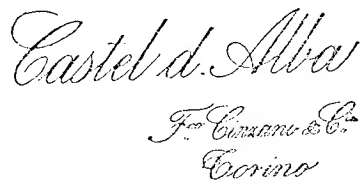 Castel d. Alba
Fco Cinzano & Cia
Torino